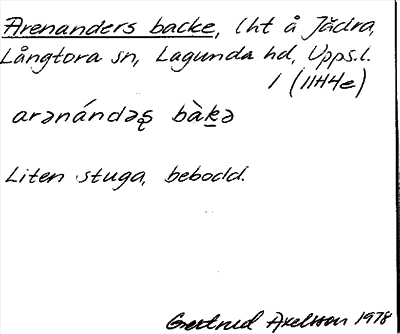 Arenanders backe, lht å Jädra,
Långtora sn, Lagunda hd, Upps.l.
1 (11H4e)
arənándəʂ bàḵə
Liten stuga, bebodd.
Gertrud Axelsson 1978